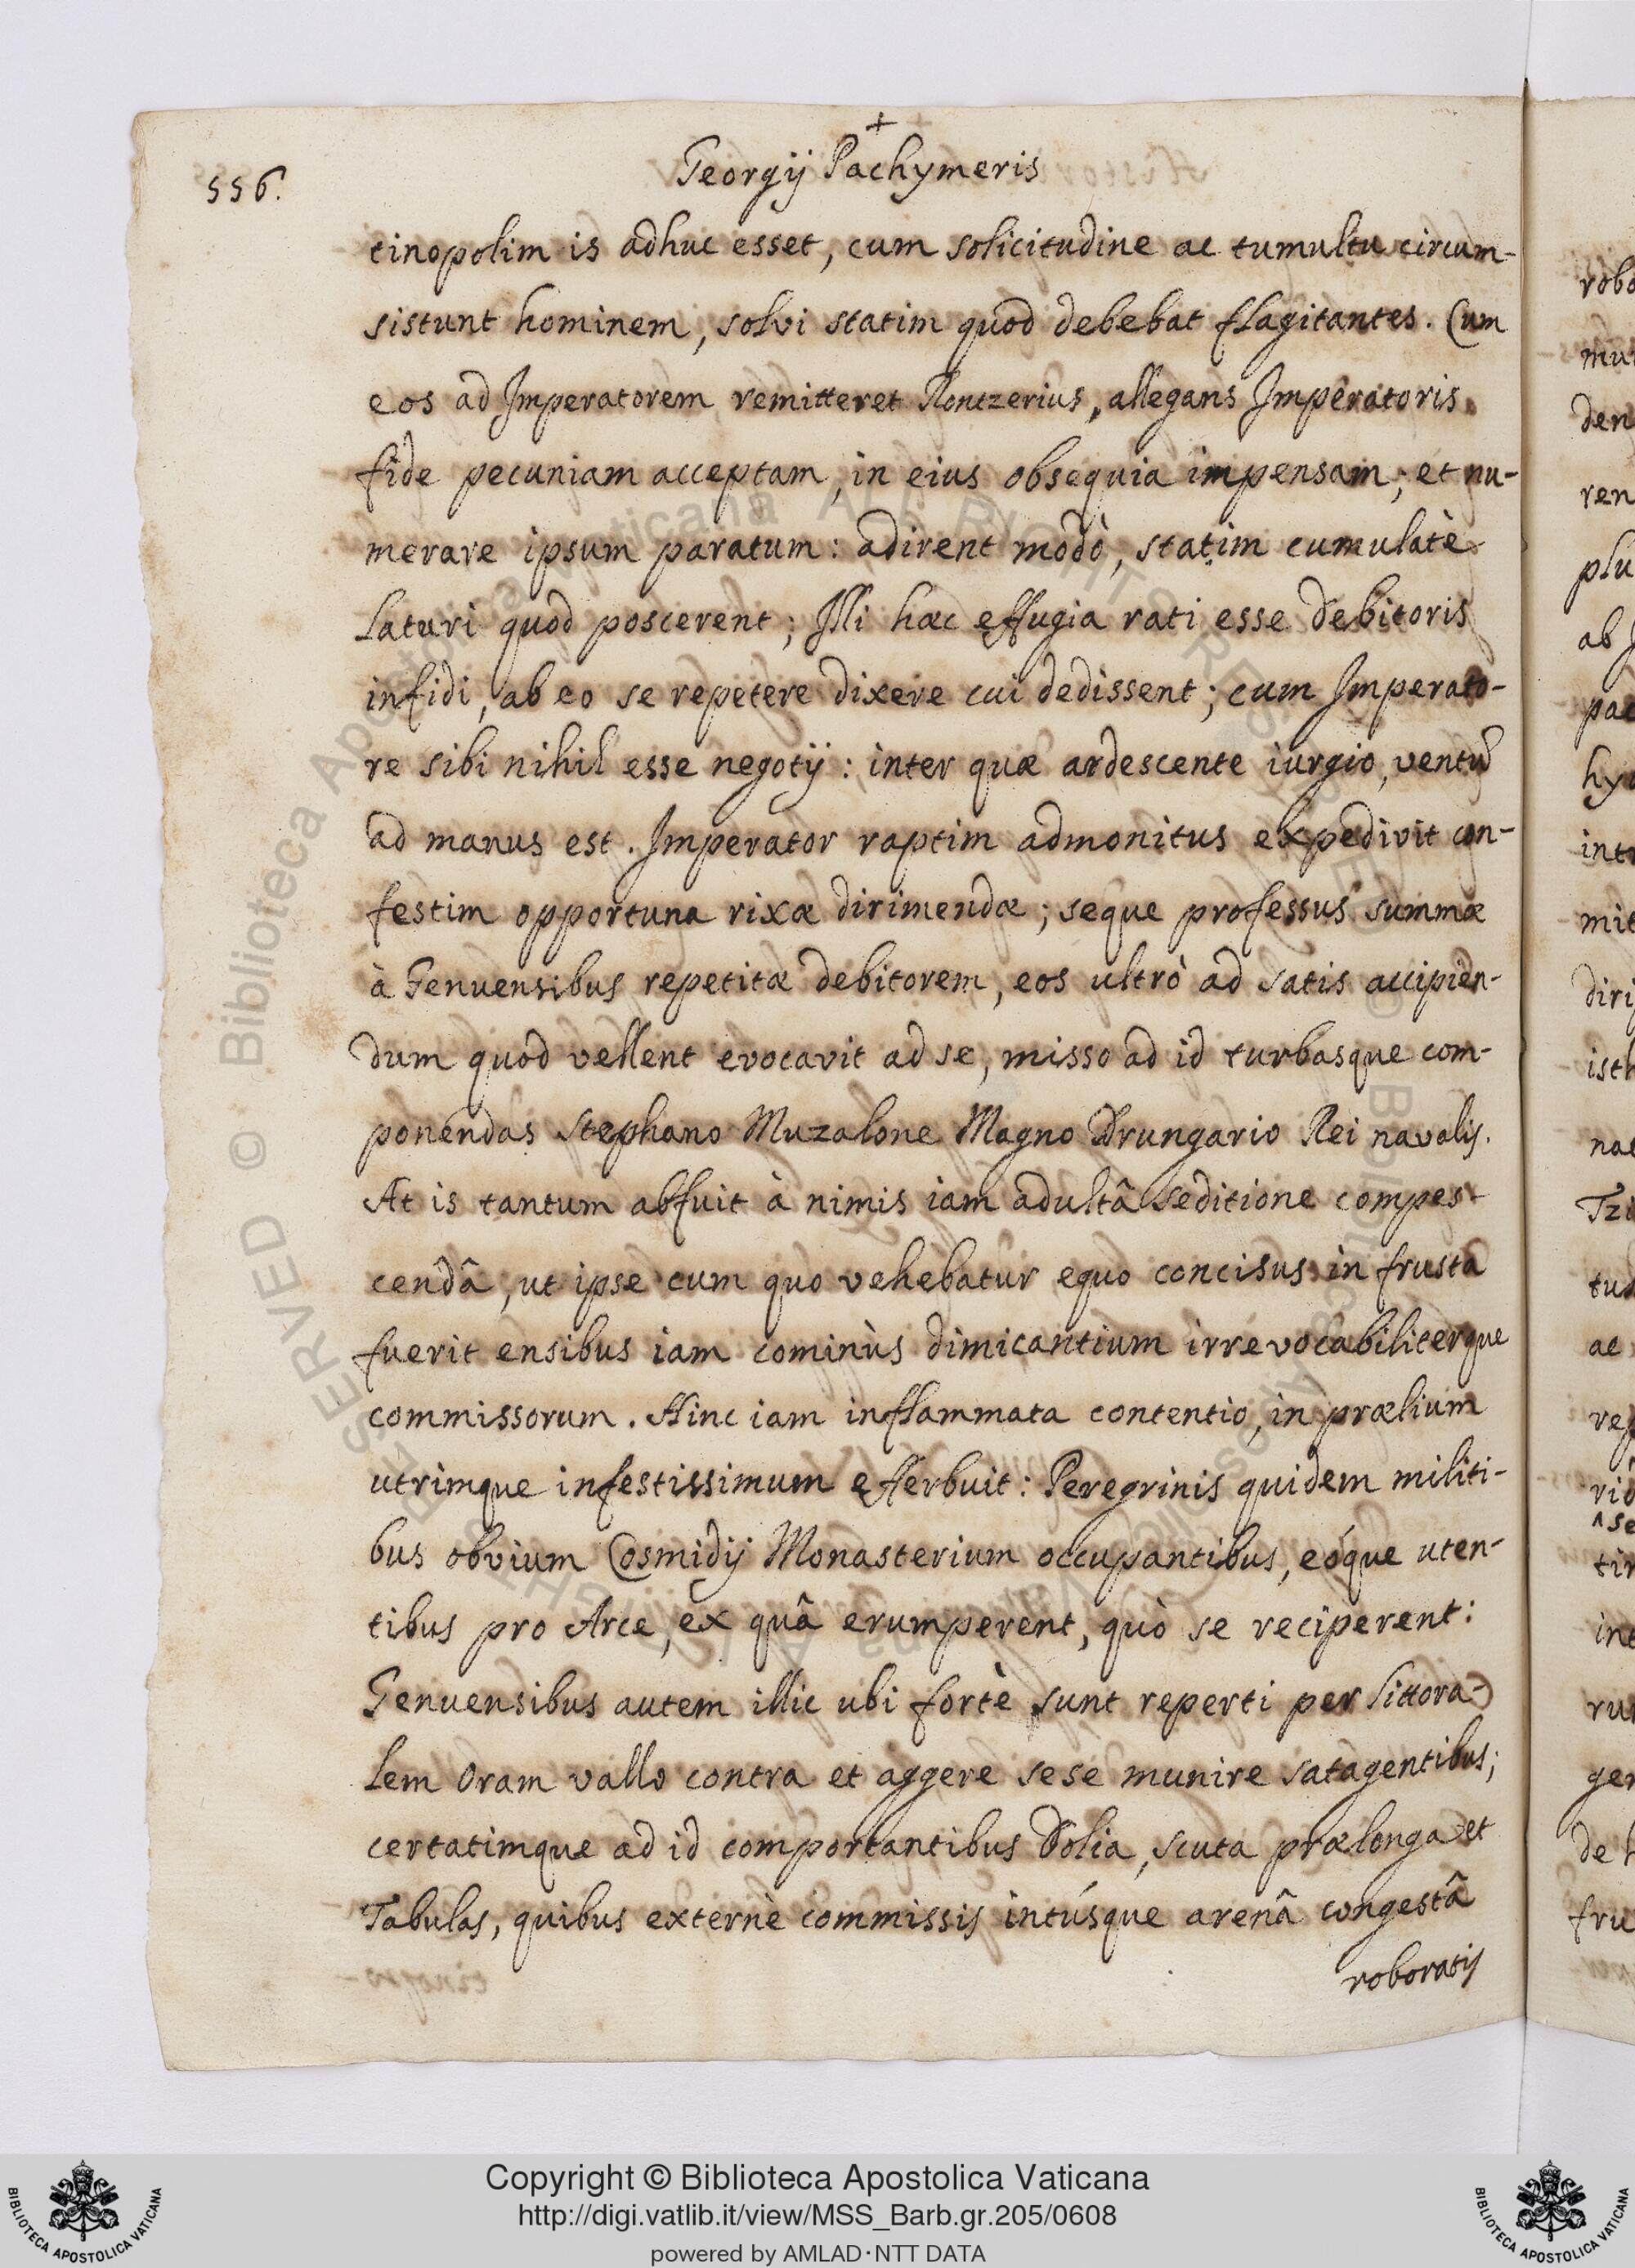 +
556.
Georgij Pachymeris
tinopolim is adhuc esset, cum solicitudine ac tumultu circum-
sistunt hominem, solvi statim quod debebat flagitantes. Cum
eos ad Imperatorem remitteret Rontzerius, allegans Imperatoris
fide pecuniam acceptam, in eius obsequia impensam; et nu-
merare ipsum paratum: adirent modò, statim cumulatè
laturi quod poscerent; Illi hæc effugia rati esse debitoris
infidi, ab eo se repetere dixere cui dedissent; cum Imperato-
re sibi nihil esse negotij: inter quæ ardescente iurgio, ventũ
ad manus est. Imperator raptim admonitus expedivit con-
festim opportuna rixæ dirimendæ; seque professus summæ
à Genuensibus repetitæ debitorem, eos ultrò ad satis accipien-
dum quod vellent evocavit ad se, misso ad id turbasque com-
ponendas Stephano Muzalone Magno Drungario Rei navalis.
At is tantum abfuit à nimis iam adultâ seditione compes-
cendâ, ut ipse cum quo vehebatur equo concisus in frusta
fuerit ensibus iam cominùs dimicantium irrevocabiliterque
commissorum. Hinc iam inflammata contentio, in prælium
utrimque infestissimum efferbuit: Peregrinis quidem militi-
bus obvium Cosmidij Monasterium occupantibus, eóque uten-
tibus pro Arce, ex quâ erumperent, quò se reciperent:
Genuensibus autem illic ubi fortè sunt reperti per littora-
lem Oram vallo contra et aggere sese munire satagentibus;
certatimque ad id comportantibus Dolia, scuta prælonga et
Tabulas, quibus externè commissis intúsque arenâ congestâ
roboratis
Copyright © Biblioteca Apostolica Vaticana
http://digi.vatlib.it/view/MSS_Barb.gr.205/0608
powered by AMLAD·NTT DATA
BIBLIOTECA APOSTOLICA VATICANA
BIBLIOTECA APOSTOLICA VATICANA